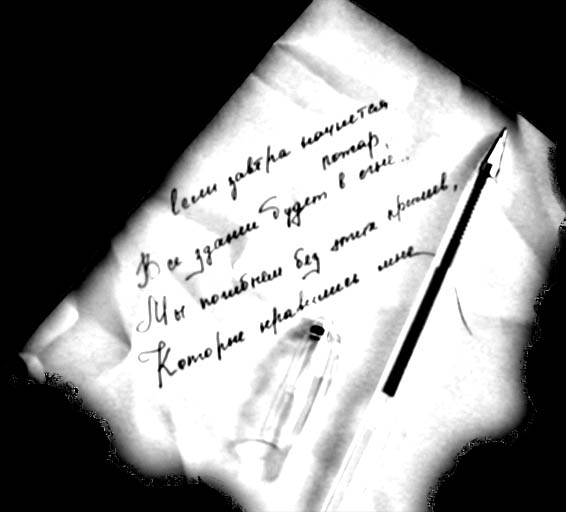 если завтра начнется
пожар,
Все здание будет в огне..
Мы погибнем без этих крыльев,
Которые нравились мне